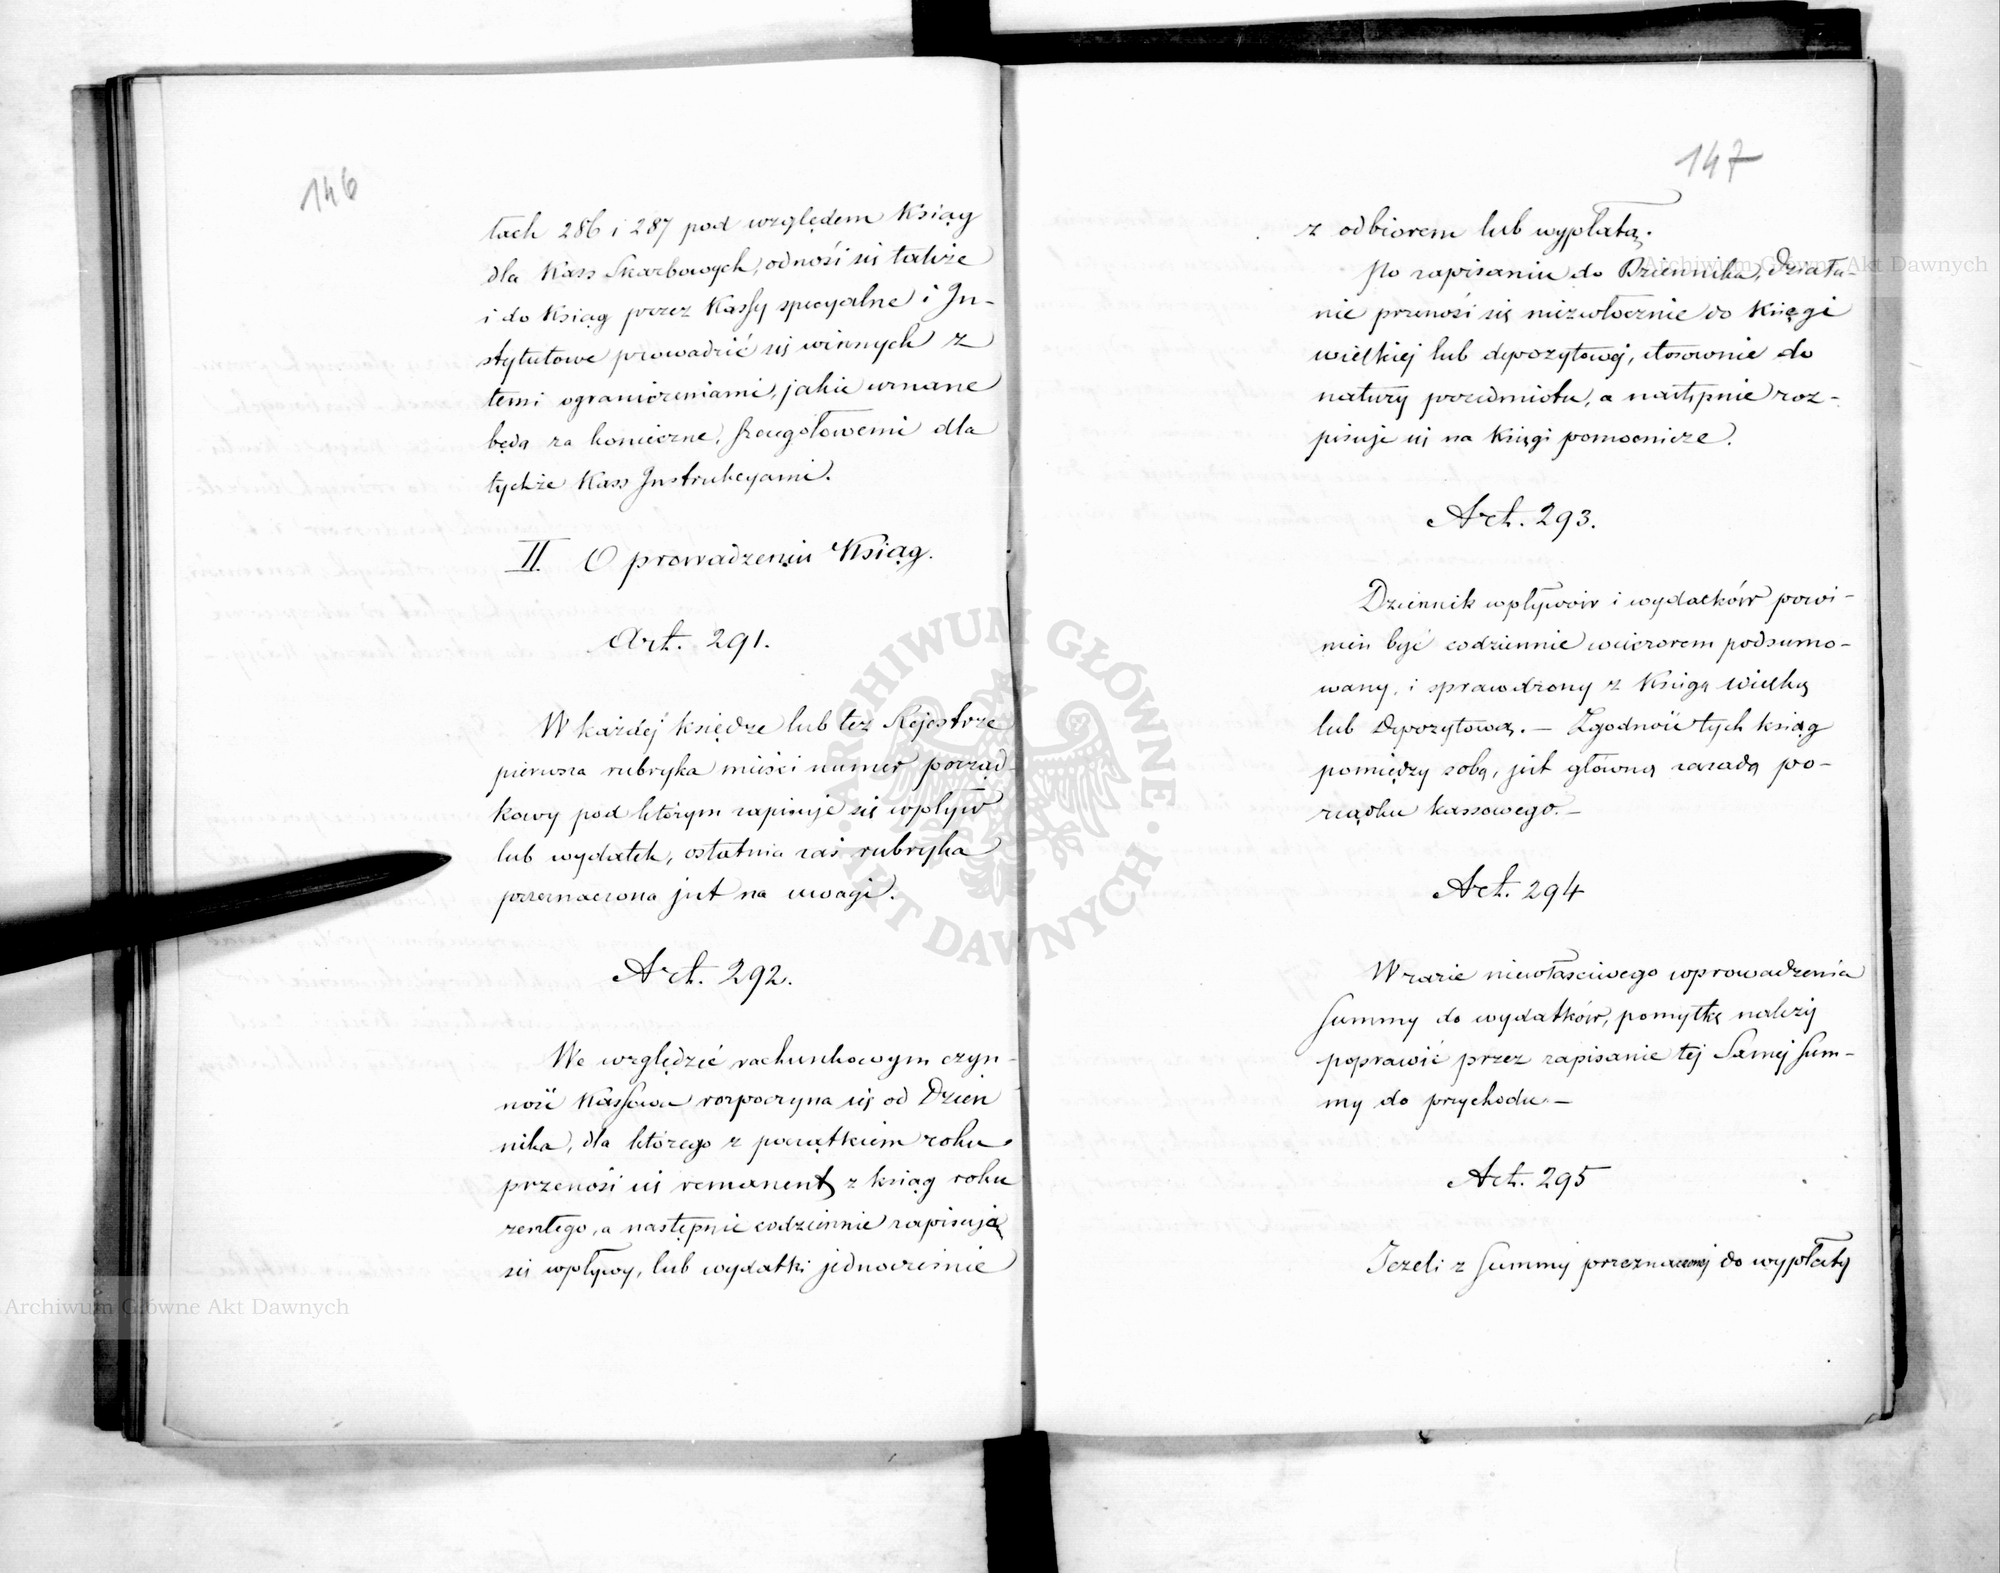 146
tach 286 i 287 pod względem Ksiąg
dla Kass Skarbowych, odnośi się także
i do Ksiąg przez Kassy specyalne i In-
stytutowe prowadzić się winnych z
temi ograniczeniami, jakie uznane
będą za konieczne, szczegółowemi dla
tychże Kass Instrukcyami.
II. O prowadzeniu Ksiąg.
Art. 291.
W każdéj księdze lub też Rejestrze
pierwsza rubryka mieści numer porząd-
kowy pod którym zapisuje się wpływ
lub wydatek, ostatnia zaś rubryka
przeznaczona jest na uwagi.
Art. 292.
We względzie rachunkowym czyn-
ność Kassowa rozpoczyna się od Dzien
nika, dla którego z początkiem roku
przenośi się remanent z ksiąg roku
zeszłego, a następnie codziennie zapisują
się wpływy, lub wydatki jednocześnie
147
z odbiorem lub wypłatą.
Po zapisaniu do Dziennika, działa-
nie przenośi się niezwłocznie do Księgi
wielkiej lub depozytowej, stosownie do
natury przedmiotu, a następnie roz-
pisuje się na Księgi pomocnicze.
Art. 293.
Dziennik wpływów i wydatków powi-
nien być codziennie wieczorem podsumo-
wany, i sprawdzony z Księgą wielką
lub Depozytową. – Zgodność tych ksiąg
pomiędzy sobą, jest główną zasadą po-
rządku kassowego. –
Art. 294
W razie niewłaściwego wprowadzenia
Summy do wydatków, pomyłkę należy
poprawić przez zapisanie tej Samej Sum-
my do przychodu. –
Art. 295
Jeżeli z Summy przeznaczonej do wypłaty
ARCHIWUM GŁÓWNE · AKT DAWNYCH ·
Archiwum Główne Akt Dawnych
Archiwum Główne Akt Dawnych